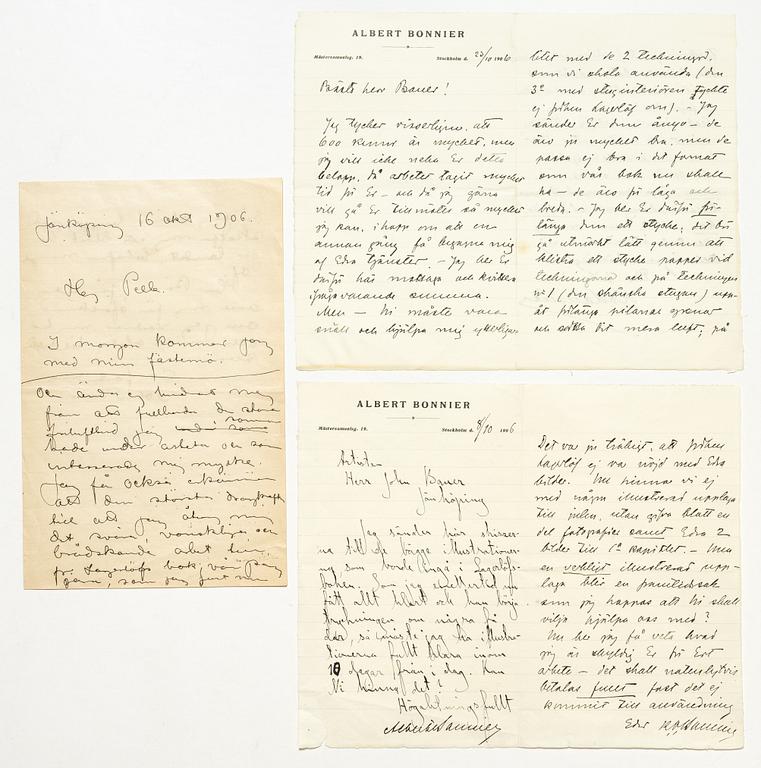 Jönköping 16 okt 1906.
Hej Pelle.
I morgon kommer jag
med min fästmö.
Och ända
från att fullborda de stora
friluftslif jag
hade under arbete och som
intresserade mig mycket.
Jag få också erkänna
att den största
till att jag åtog mig
det svåra, vanskliga och
brådskande arbetet
fr. Lagerlöfs bok, var
ALBERT BONNIER
Mästersamuelsg. 19. Stockholm d. 23/10 1906
Bäste herr Bauer!
Jag tycker visserligen, att
600 kronor är mycket, men
jag vill icke neka Er detta
belopp, då arbetet tagit mycket
tid på Er – och då jag gärna
vill gå Er till mötes så mycket
jag kan, i hopp om att en
annan gång få begagna mig
af Edra tjänster. – Jag ber Er
därför här mottaga och kvittera
ifrågavarande summa.
Men – Ni måste vara
snäll och hjälpa mig ytterligare
litet med de 2 teckningarna,
som vi skola använda (den
3e med stuginteriören tyckte
ej fröken Lagerlöf om). – Jag
sänder Er dem ånyo – de
äro ju mycket bra, men de
passa ej bra i det format
som vår bok nu skall
ha – de äro för låga och
breda. – Jag ber Er därför för-
länga dem ett stycke; det bör
gå utmärkt lätt genom att
klistra ett stycke papper vid
teckningarna och på teckningen
nr 1 (den skånska stugan) upp-
åt förlänga pilarnas grenar
och sätta dit mera luft; på
ALBERT BONNIER
Mästersamuelsg. 19. Stockholm d. 8/10 1906
Artisten
Herr John Bauer
Jönköping
Jag sänder här skisser-
na till de bägge illustrationer-
na som borde ingå i Lagerlöfs-
boken. Som jag emellertid
fått allt klart och kan börja
tryckningen om några få
dar, så måste jag ha illustra-
tionerna fullt klara inom
10 dagar från i dag. Kan
Ni hinna det?
Högaktningsfullt
Albert Bonnier
Det var ju tråkigt, att fröken
Lagerlöf ej var nöjd med Edra
bilder. Nu hinna vi ej
med någon illustrerad upplaga
till julen, utan gifva blott en
del fotografier samt Edra 2
bilder till 1a kapitlet. – Men
en verkligt illustrerad upp-
laga blir en framtidssak
som jag hoppas att Ni skall
vilja hjälpa oss med?
Nu ber jag få veta hvad
jag är skyldig Er för Ert
arbete – det skall naturligtvis
betalas fullt fast det ej
kommit till användning
Eder K.O. Bonnier